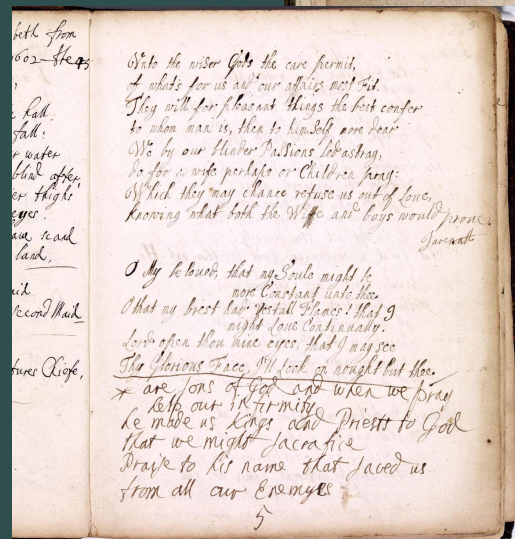 beth from
1602
hall,
fall:
water
blind after,
thighs
eyes:
land,
aid
second Maid
tures Chiefe,
Unto the wiser Gods the care permit,
of what's for us and our affairs most Fit.
They will for pleasant things the best confer
to whom man is, then to himself more dear
We by our blinder Passions led astray,
do for a wife perhaps or Children pray:
Which they may chance refuse us out of Love,
knowing what both the Wiffe and boys would prove.
Juvenall
O My beloved, that my Soule might be
more Constant unto thee.
O that my brest had Vestall Flames! that I
might Love Continually.
Lord open thou mine eyes, that I may see
Thy Glorious Face, I'll Look on nought but thee.
are sons of God and when we pray
help our infirmity
he made us Kings and Priests to God
that we might sacrafice
Praise to his name that saved us
from all our Enemyes
5